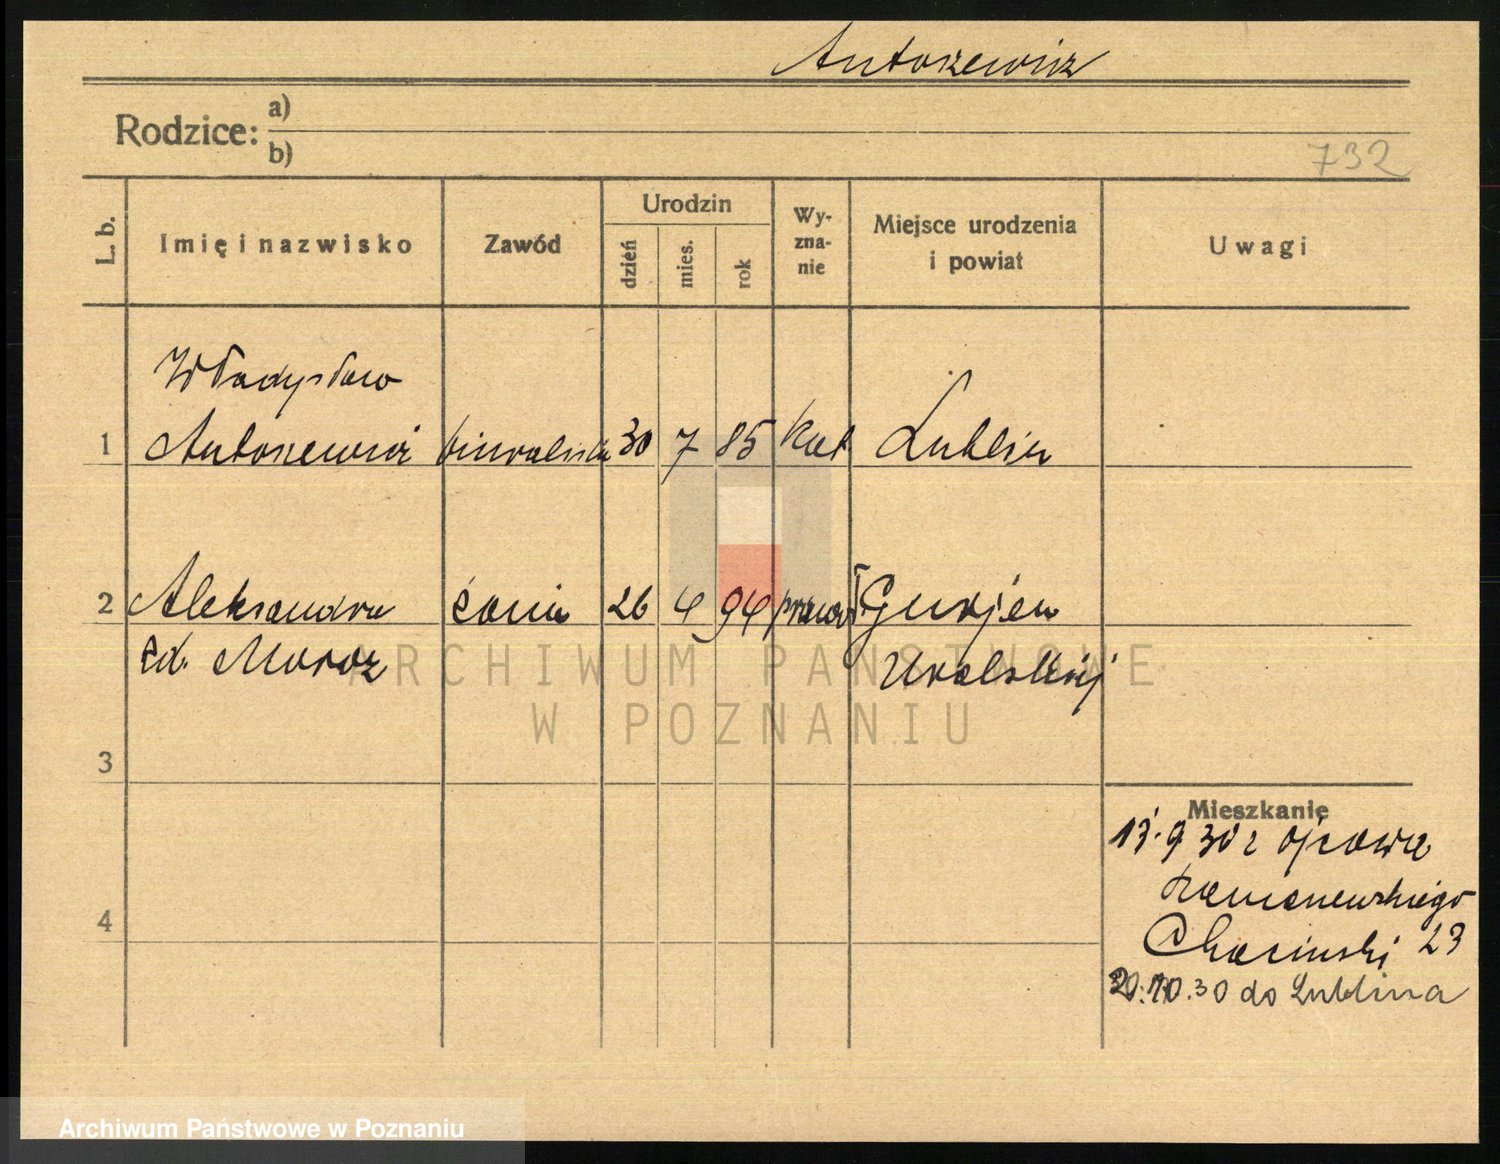 Antoszewicz
Rodzice: a)
b)
732
L. b.
Imię i nazwisko
Zawód
Urodzin
dzień
mies.
rok
Wy-
zna-
nie
Miejsce urodzenia
i powiat
Uwagi
Władysław
1 Antoszewicz 30 7 85 kat Lublin
2 Aleksandra żona 26 4 94 prawosł Gurjew
zd. Moroz Uralskiej
3
Mieszkanie
13.9 30 r
4
23
20.10.30 do Lublina
ARCHIWUM PAŃSTWOWE
W POZNANIU
Archiwum Państwowe w Poznaniu